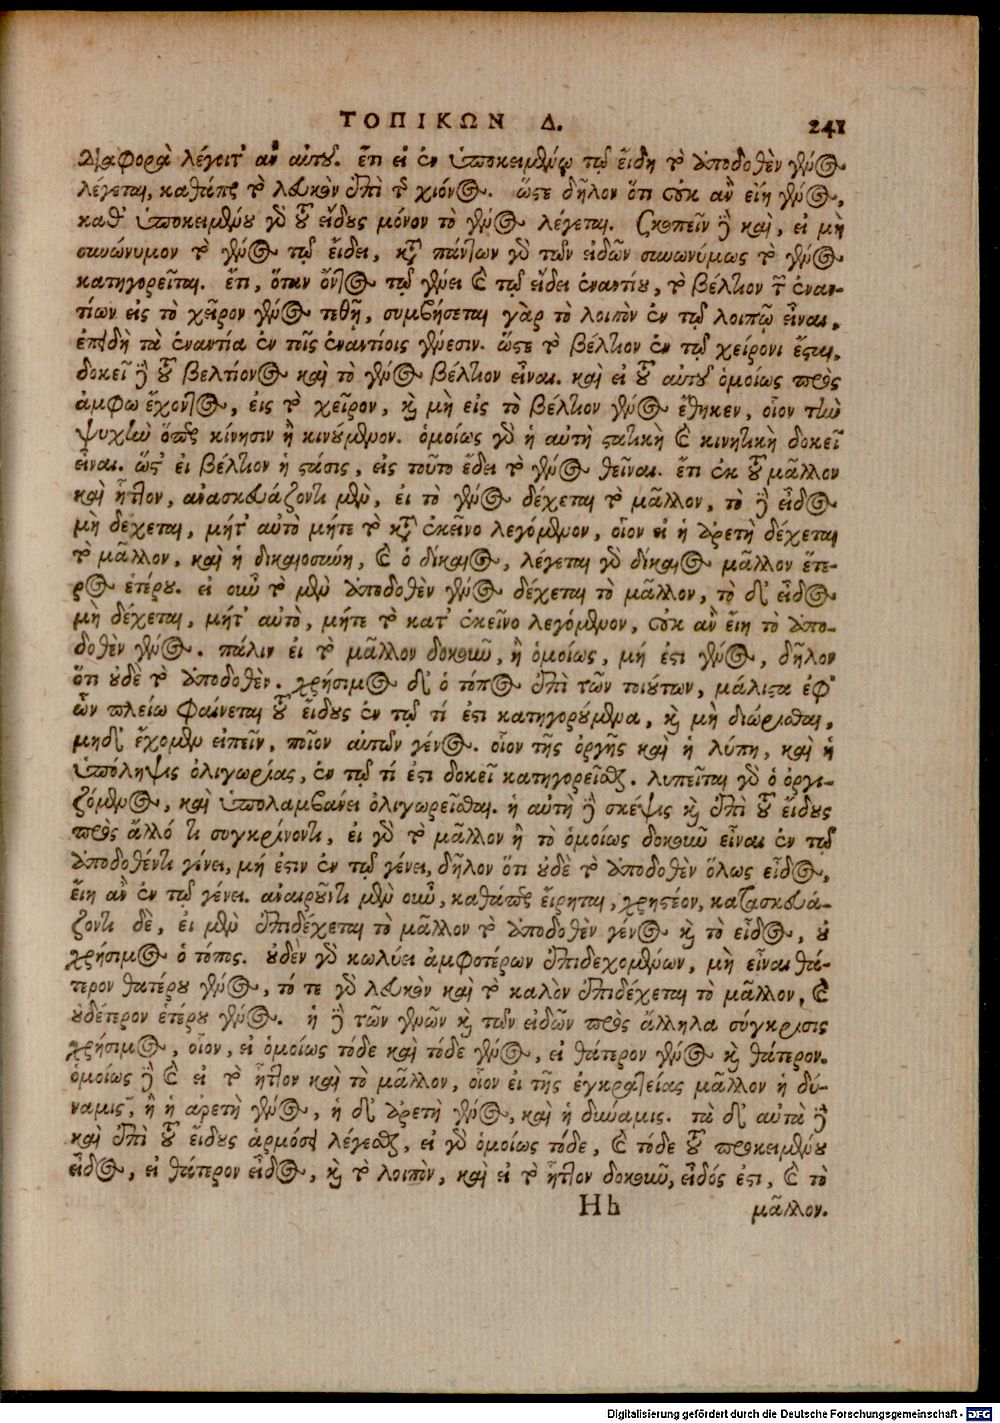 ΤΟΠΙΚΩΝ Δ. 241
διαφορὰ λέγοιτ' ἂν αὐτοῦ. ἔτι εἰ ἐν ὑποκειμένῳ τῷ εἴδη τὸ ἀποδοθὲν γένος
λέγεται, καθάπερ τὸ λευκὸν ἐπὶ τῆς χιόνος. ὥστε δῆλον ὅτι οὐκ ἂν εἴη γένος,
καθ' ὑποκειμένου γὰρ τοῦ εἴδους μόνον τὸ γένος λέγεται. Σκοπεῖν δὲ καὶ, εἰ μὴ
συνώνυμον τὸ γένος τῷ εἴδει, κατὰ πάντων γὰρ τῶν εἰδῶν συνωνύμως τὸ γένος
κατηγορεῖται. ἔτι, ὅταν ὄντος τῷ γένει καὶ τῷ εἴδει ἐναντίου, τὸ βέλτιον τῶν ἐναν-
τίων εἰς τὸ χεῖρον γένος τεθῇ, συμβήσεται γὰρ τὸ λοιπὸν ἐν τῷ λοιπῷ εἶναι,
ἐπειδὴ τὰ ἐναντία ἐν τοῖς ἐναντίοις γένεσιν. ὥστε τὸ βέλτιον ἐν τῷ χείρονι ἔσται,
δοκεῖ δὲ τοῦ βελτίονος καὶ τὸ γένος βέλτιον εἶναι. καὶ εἰ τοῦ αὐτοῦ ὁμοίως πρὸς
ἄμφω ἔχοντος, εἰς τὸ χεῖρον, καὶ μὴ εἰς τὸ βέλτιον γένος ἔθηκεν, οἷον τὴν
ψυχὴν ὅπερ κίνησιν ἢ κινούμενον. ὁμοίως γὰρ ἡ αὐτὴ στατικὴ καὶ κινητικὴ δοκεῖ
εἶναι. ὥστ' εἰ βέλτιον ἡ στάσις, εἰς τοῦτο ἔδει τὸ γένος θεῖναι. ἔτι ἐκ τοῦ μᾶλλον
καὶ ἧττον, ἀνασκευάζοντι μὲν, εἰ τὸ γένος δέχεται τὸ μᾶλλον, τὸ δὲ εἶδος
μὴ δέχεται, μήτ' αὐτὸ μήτε τὸ κατὰ ἐκεῖνο λεγόμενον, οἷον εἰ ἡ ἀρετὴ δέχεται
τὸ μᾶλλον, καὶ ἡ δικαιοσύνη, καὶ ὁ δίκαιος, λέγεται γὰρ δίκαιος μᾶλλον ἕτε-
ρος ἑτέρου. εἰ οὖν τὸ μὲν ἀποδοθὲν γένος δέχεται τὸ μᾶλλον, τὸ δ' εἶδος
μὴ δέχεται, μήτ' αὐτὸ, μήτε τὸ κατ' ἐκεῖνο λεγόμενον, οὐκ ἂν εἴη τὸ ἀπο-
δοθὲν γένος. πάλιν εἰ τὸ μᾶλλον δοκοῦν, ἢ ὁμοίως, μή ἐστι γένος, δῆλον
ὅτι οὐδὲ τὸ ἀποδοθὲν. χρήσιμος δ' ὁ τόπος ἐπὶ τῶν τοιούτων, μάλιστα ἐφ'
ὧν πλείω φαίνεται τοῦ εἴδους ἐν τῷ τί ἐστι κατηγορούμενα, καὶ μὴ διώρισται,
μηδ' ἔχομεν εἰπεῖν, ποῖον αὐτῶν γένος. οἷον τῆς ὀργῆς καὶ ἡ λύπη, καὶ ἡ
ὑπόληψις ὀλιγωρίας, ἐν τῷ τί ἐστι δοκεῖ κατηγορεῖσθαι. λυπεῖται γὰρ ὁ ὀργι-
ζόμενος, καὶ ὑπολαμβάνει ὀλιγωρεῖσθαι. ἡ αὐτὴ δὲ σκέψις καὶ ἐπὶ τοῦ εἴδους
πρὸς ἄλλό τι συγκρίνοντι, εἰ γὰρ τὸ μᾶλλον ἢ τὸ ὁμοίως δοκοῦν εἶναι ἐν τῷ
ἀποδοθέντι γένει, μή ἐστιν ἐν τῷ γένει, δῆλον ὅτι οὐδὲ τὸ ἀποδοθὲν ὅλως εἶδος,
εἴη ἂν ἐν τῷ γένει. ἀναιροῦντι μὲν οὖν, καθάπερ εἴρηται, χρηστέον, κατασκευά-
ζοντι δὲ, εἰ μὲν ἐπιδέχεται τὸ μᾶλλον τὸ ἀποδοθὲν γένος καὶ τὸ εἶδος, οὐ
χρήσιμος ὁ τόπος. οὐδὲν γὰρ κωλύει ἀμφοτέρων ἐπιδεχομένων, μὴ εἶναι θά-
τερον θατέρου γένος, τό τε γὰρ λευκὸν καὶ τὸ καλὸν ἐπιδέχεται τὸ μᾶλλον, καὶ
οὐδέτερον ἑτέρου γένος. ἡ δὲ τῶν γενῶν καὶ τῶν εἰδῶν πρὸς ἄλληλα σύγκρισις
χρήσιμος, οἷον, εἰ ὁμοίως τόδε καὶ τόδε γένος, εἰ θάτερον γένος καὶ θάτερον.
ὁμοίως δὲ καὶ εἰ τὸ ἧττον καὶ τὸ μᾶλλον, οἷον εἰ τῆς ἐγκρατείας μᾶλλον ἡ δύ-
ναμις, ἢ ἡ ἀρετὴ γένος, ἡ δ' ἀρετὴ γένος, καὶ ἡ δύναμις. τὰ δ' αὐτὰ δὲ
καὶ ἐπὶ τοῦ εἴδους ἁρμόσει λέγεσθαι, εἰ γὰρ ὁμοίως τόδε, καὶ τόδε τοῦ προκειμένου
εἶδος, εἰ θάτερον εἶδος, καὶ τὸ λοιπὸν, καὶ εἰ τὸ ἧττον δοκοῦν, εἶδός ἐστι, καὶ τὸ
Hh μᾶλλον.
Digitalisierung gefördert durch die Deutsche Forschungsgemeinschaft - DFG